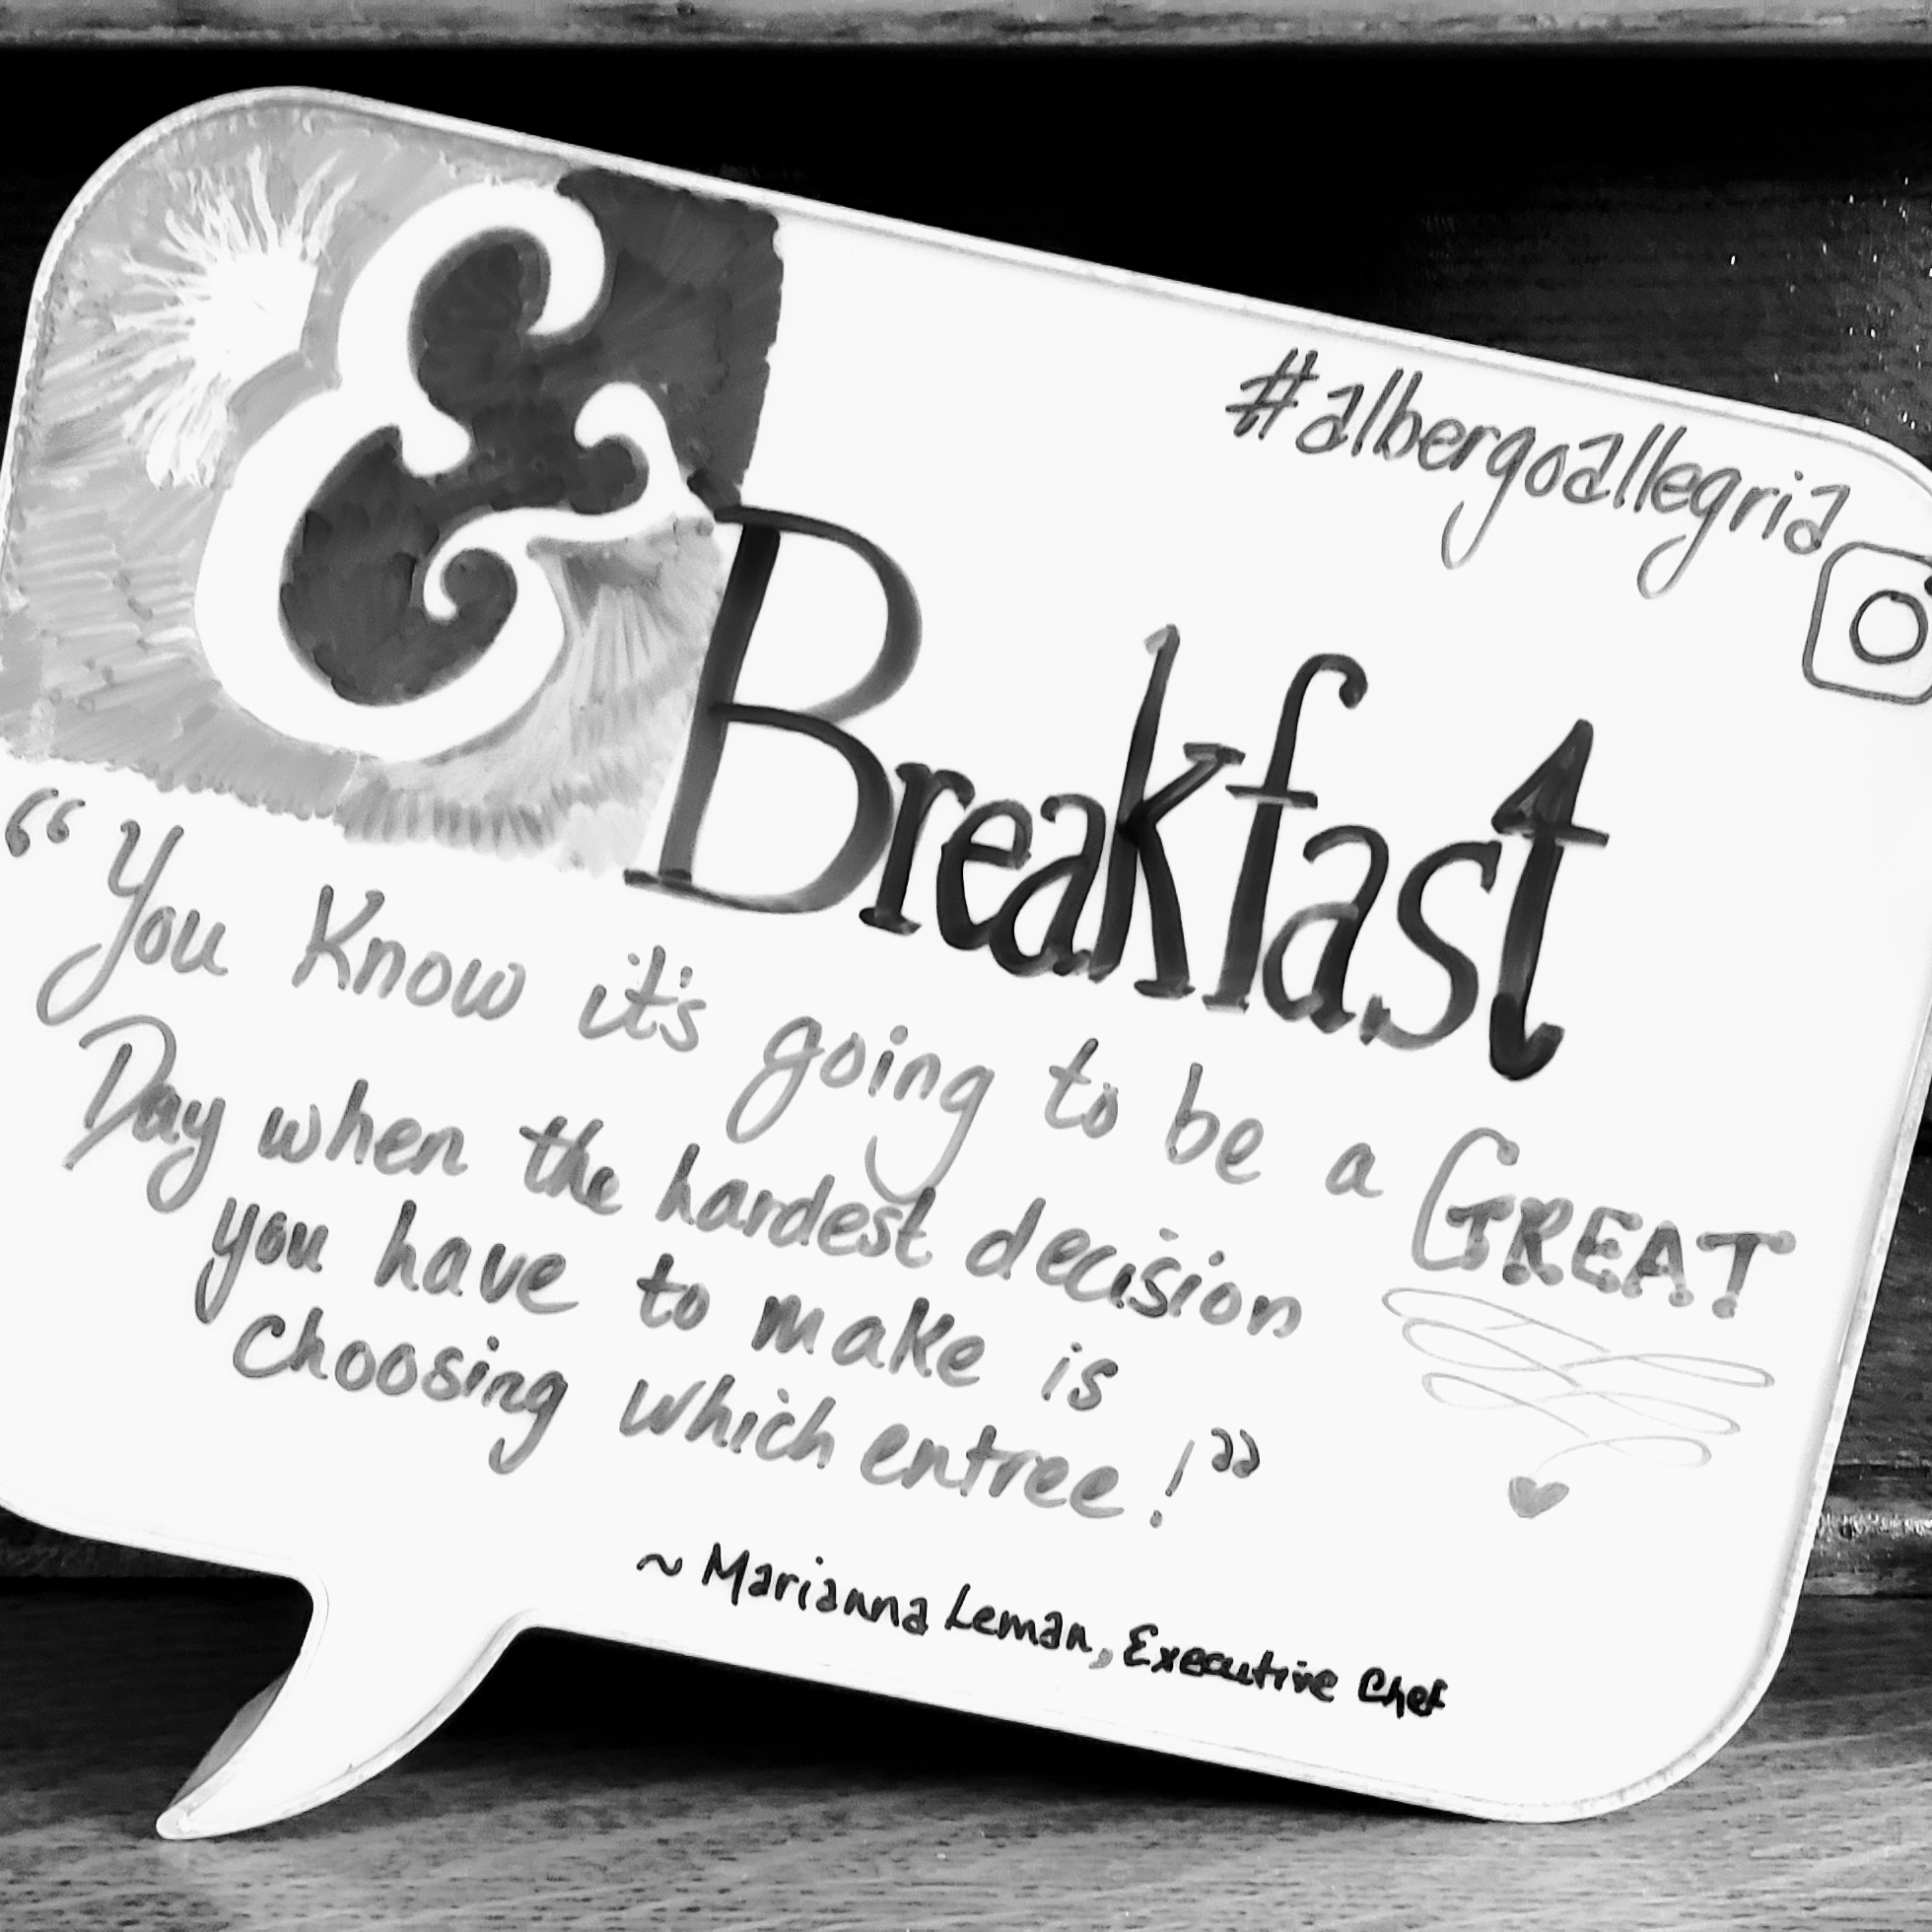 #albergoallegria
& Breakfast
“You Know it's going to be a GREAT
Day when the hardest decision
you have to make is
Choosing which entree!”
~ Marianna Leman, Executive Chef